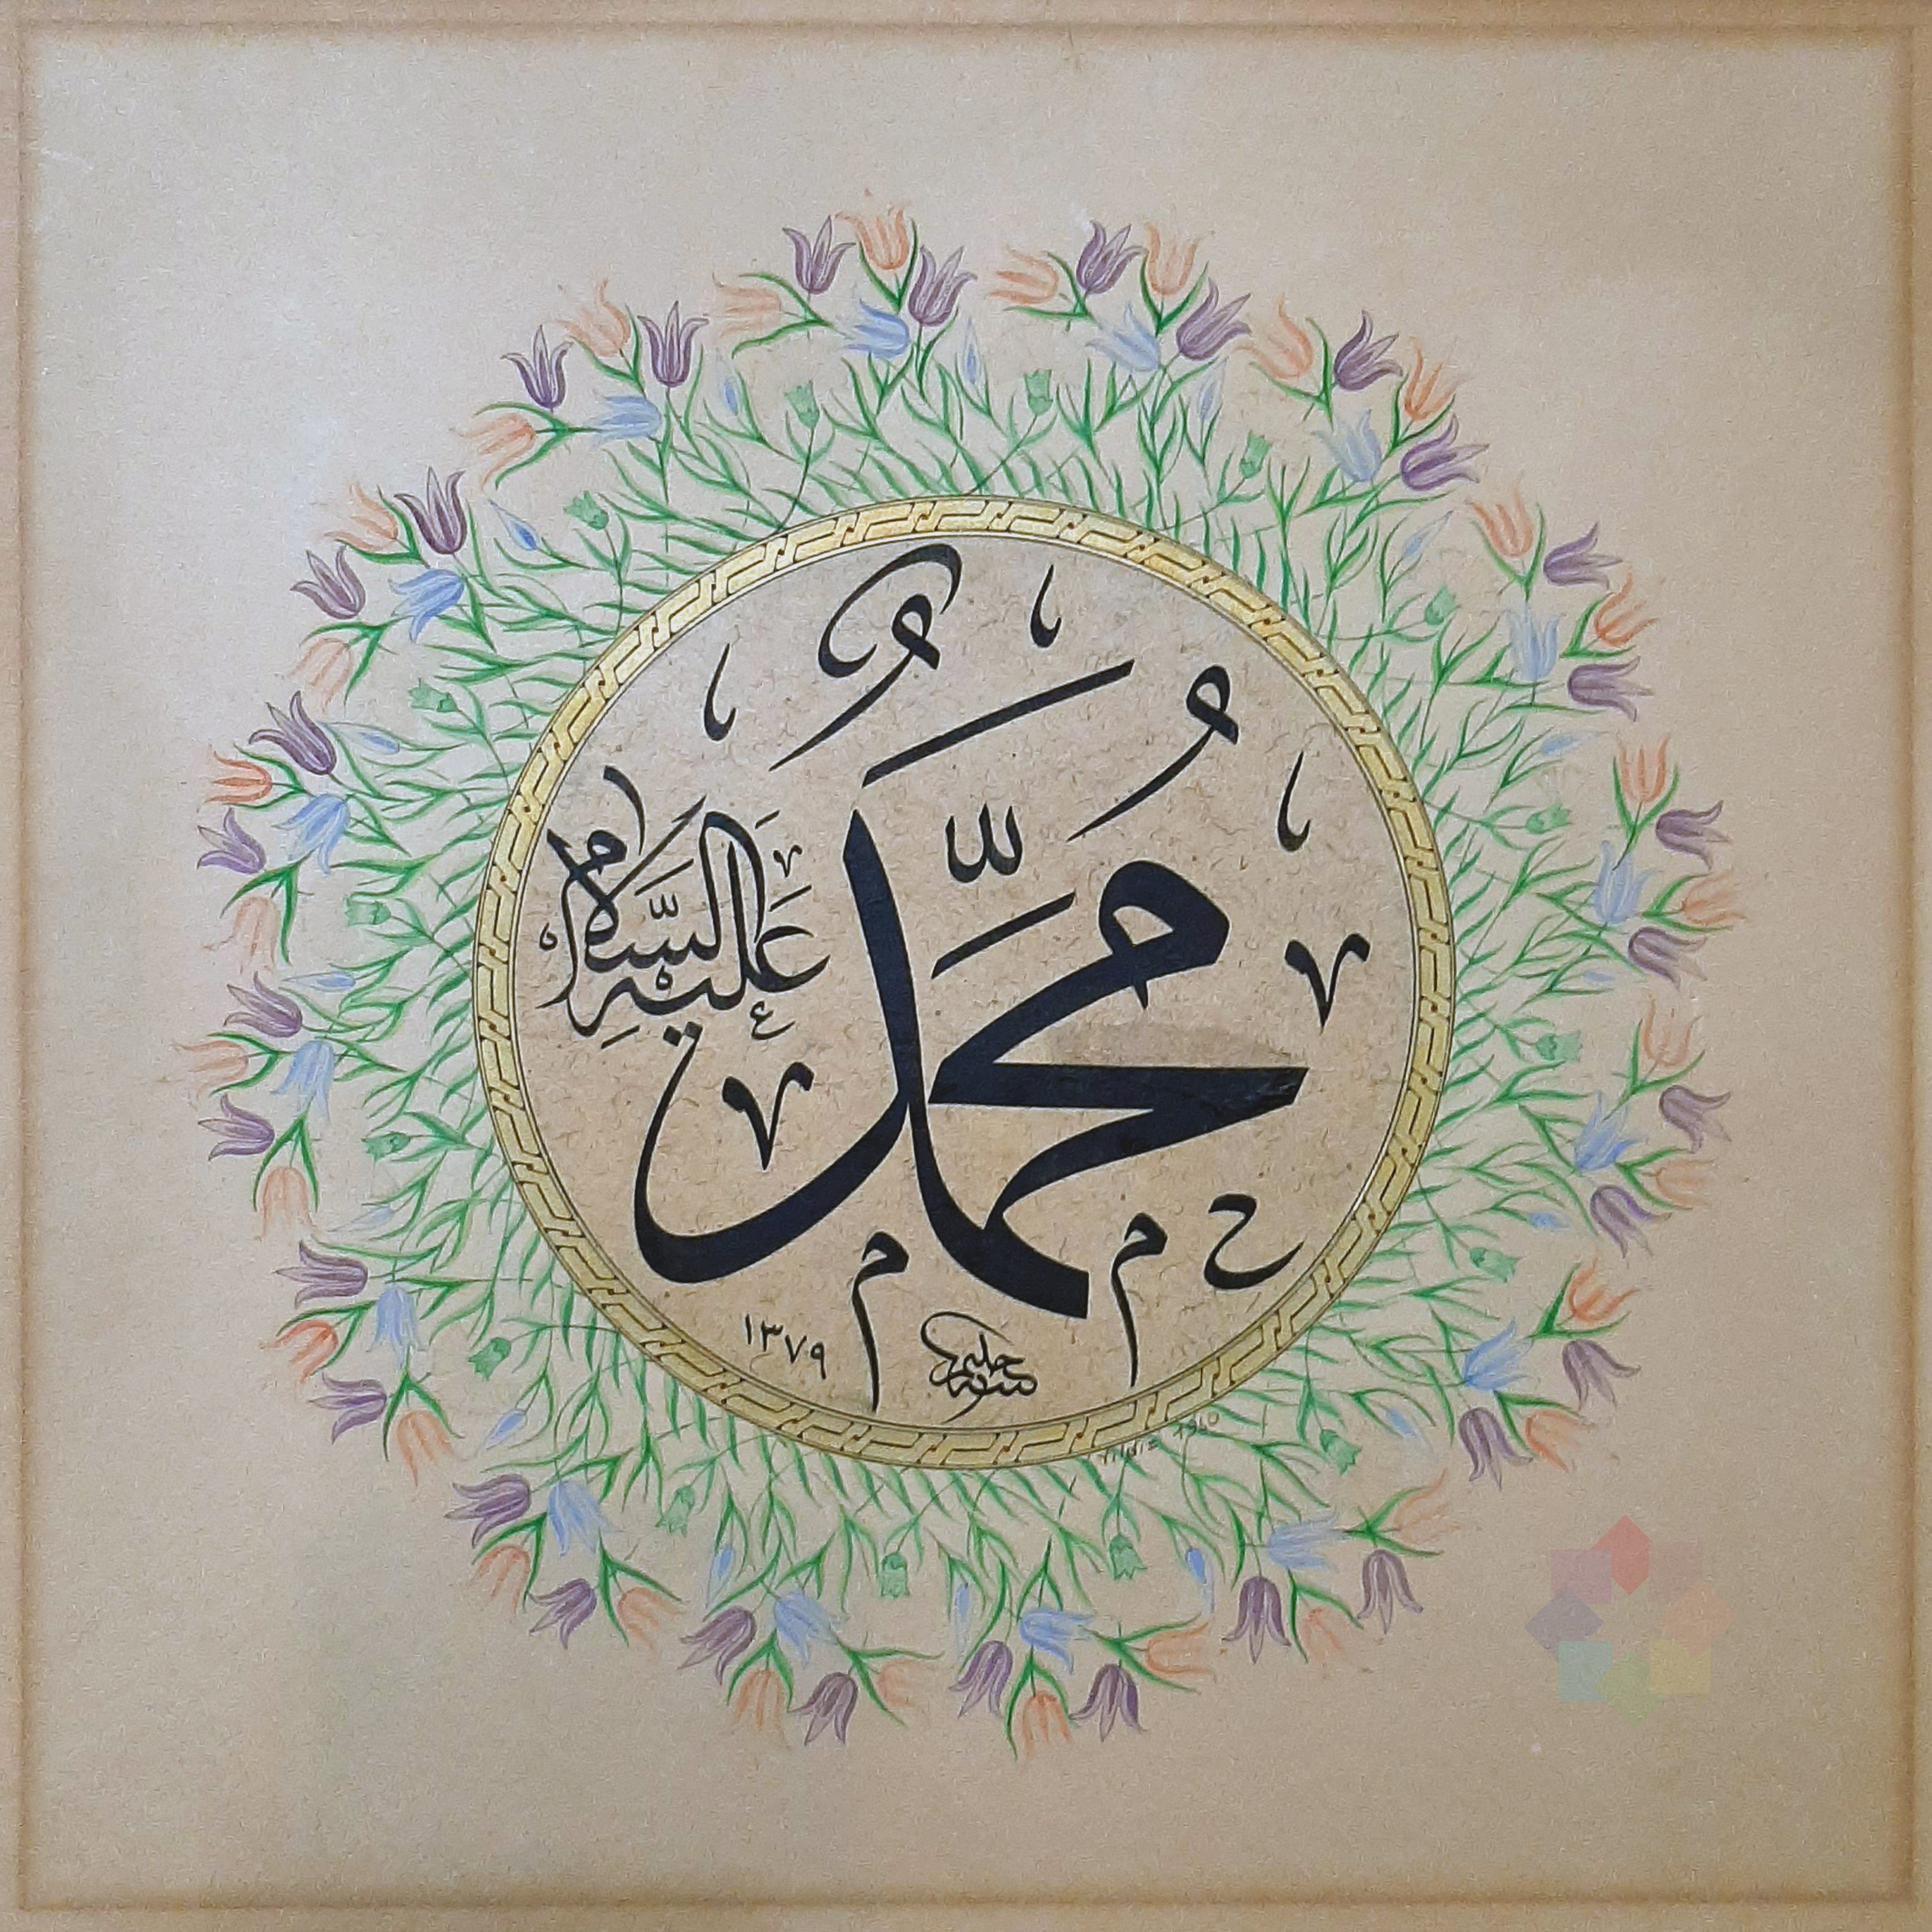 مُحَمَّدٌ
عَلَيْهِ السَّلَام
١٣٧٩
حليم
1960